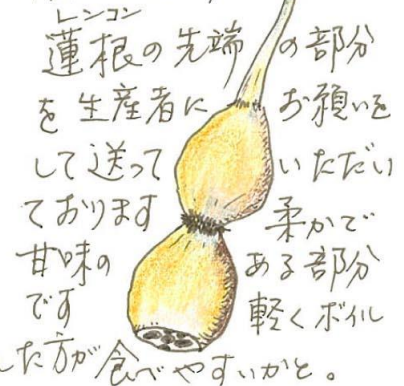 レンコン
蓮根の先端の部分
を生産者にお願いを
して送っていただい
ております 柔かで
甘味のある部分
です 軽くボイル
した方が食べやすいかと。